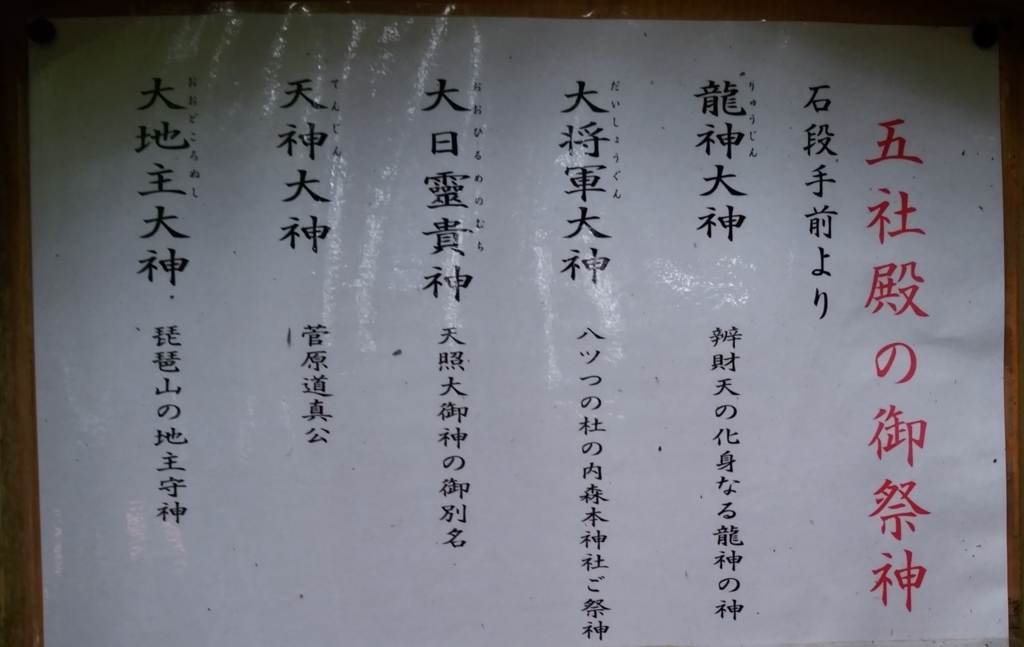 五社殿の御祭神
石段手前より
龍神大神 辨財天の化身なる龍神の神
りゅうじん
大将軍大神 八ツつの杜の内森本神社ご祭神
だいしょうぐん
大日靈貴神 天照大御神の御別名
おおひるめのむち
天神大神 菅原道真公
てんじん
大地主大神 琵琶山の地主守神
おおどころぬし